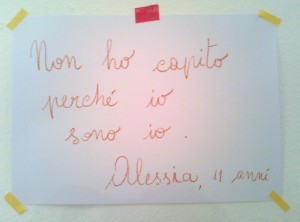 Non ho capito
perché io
sono io.
Alessia, 11 anni